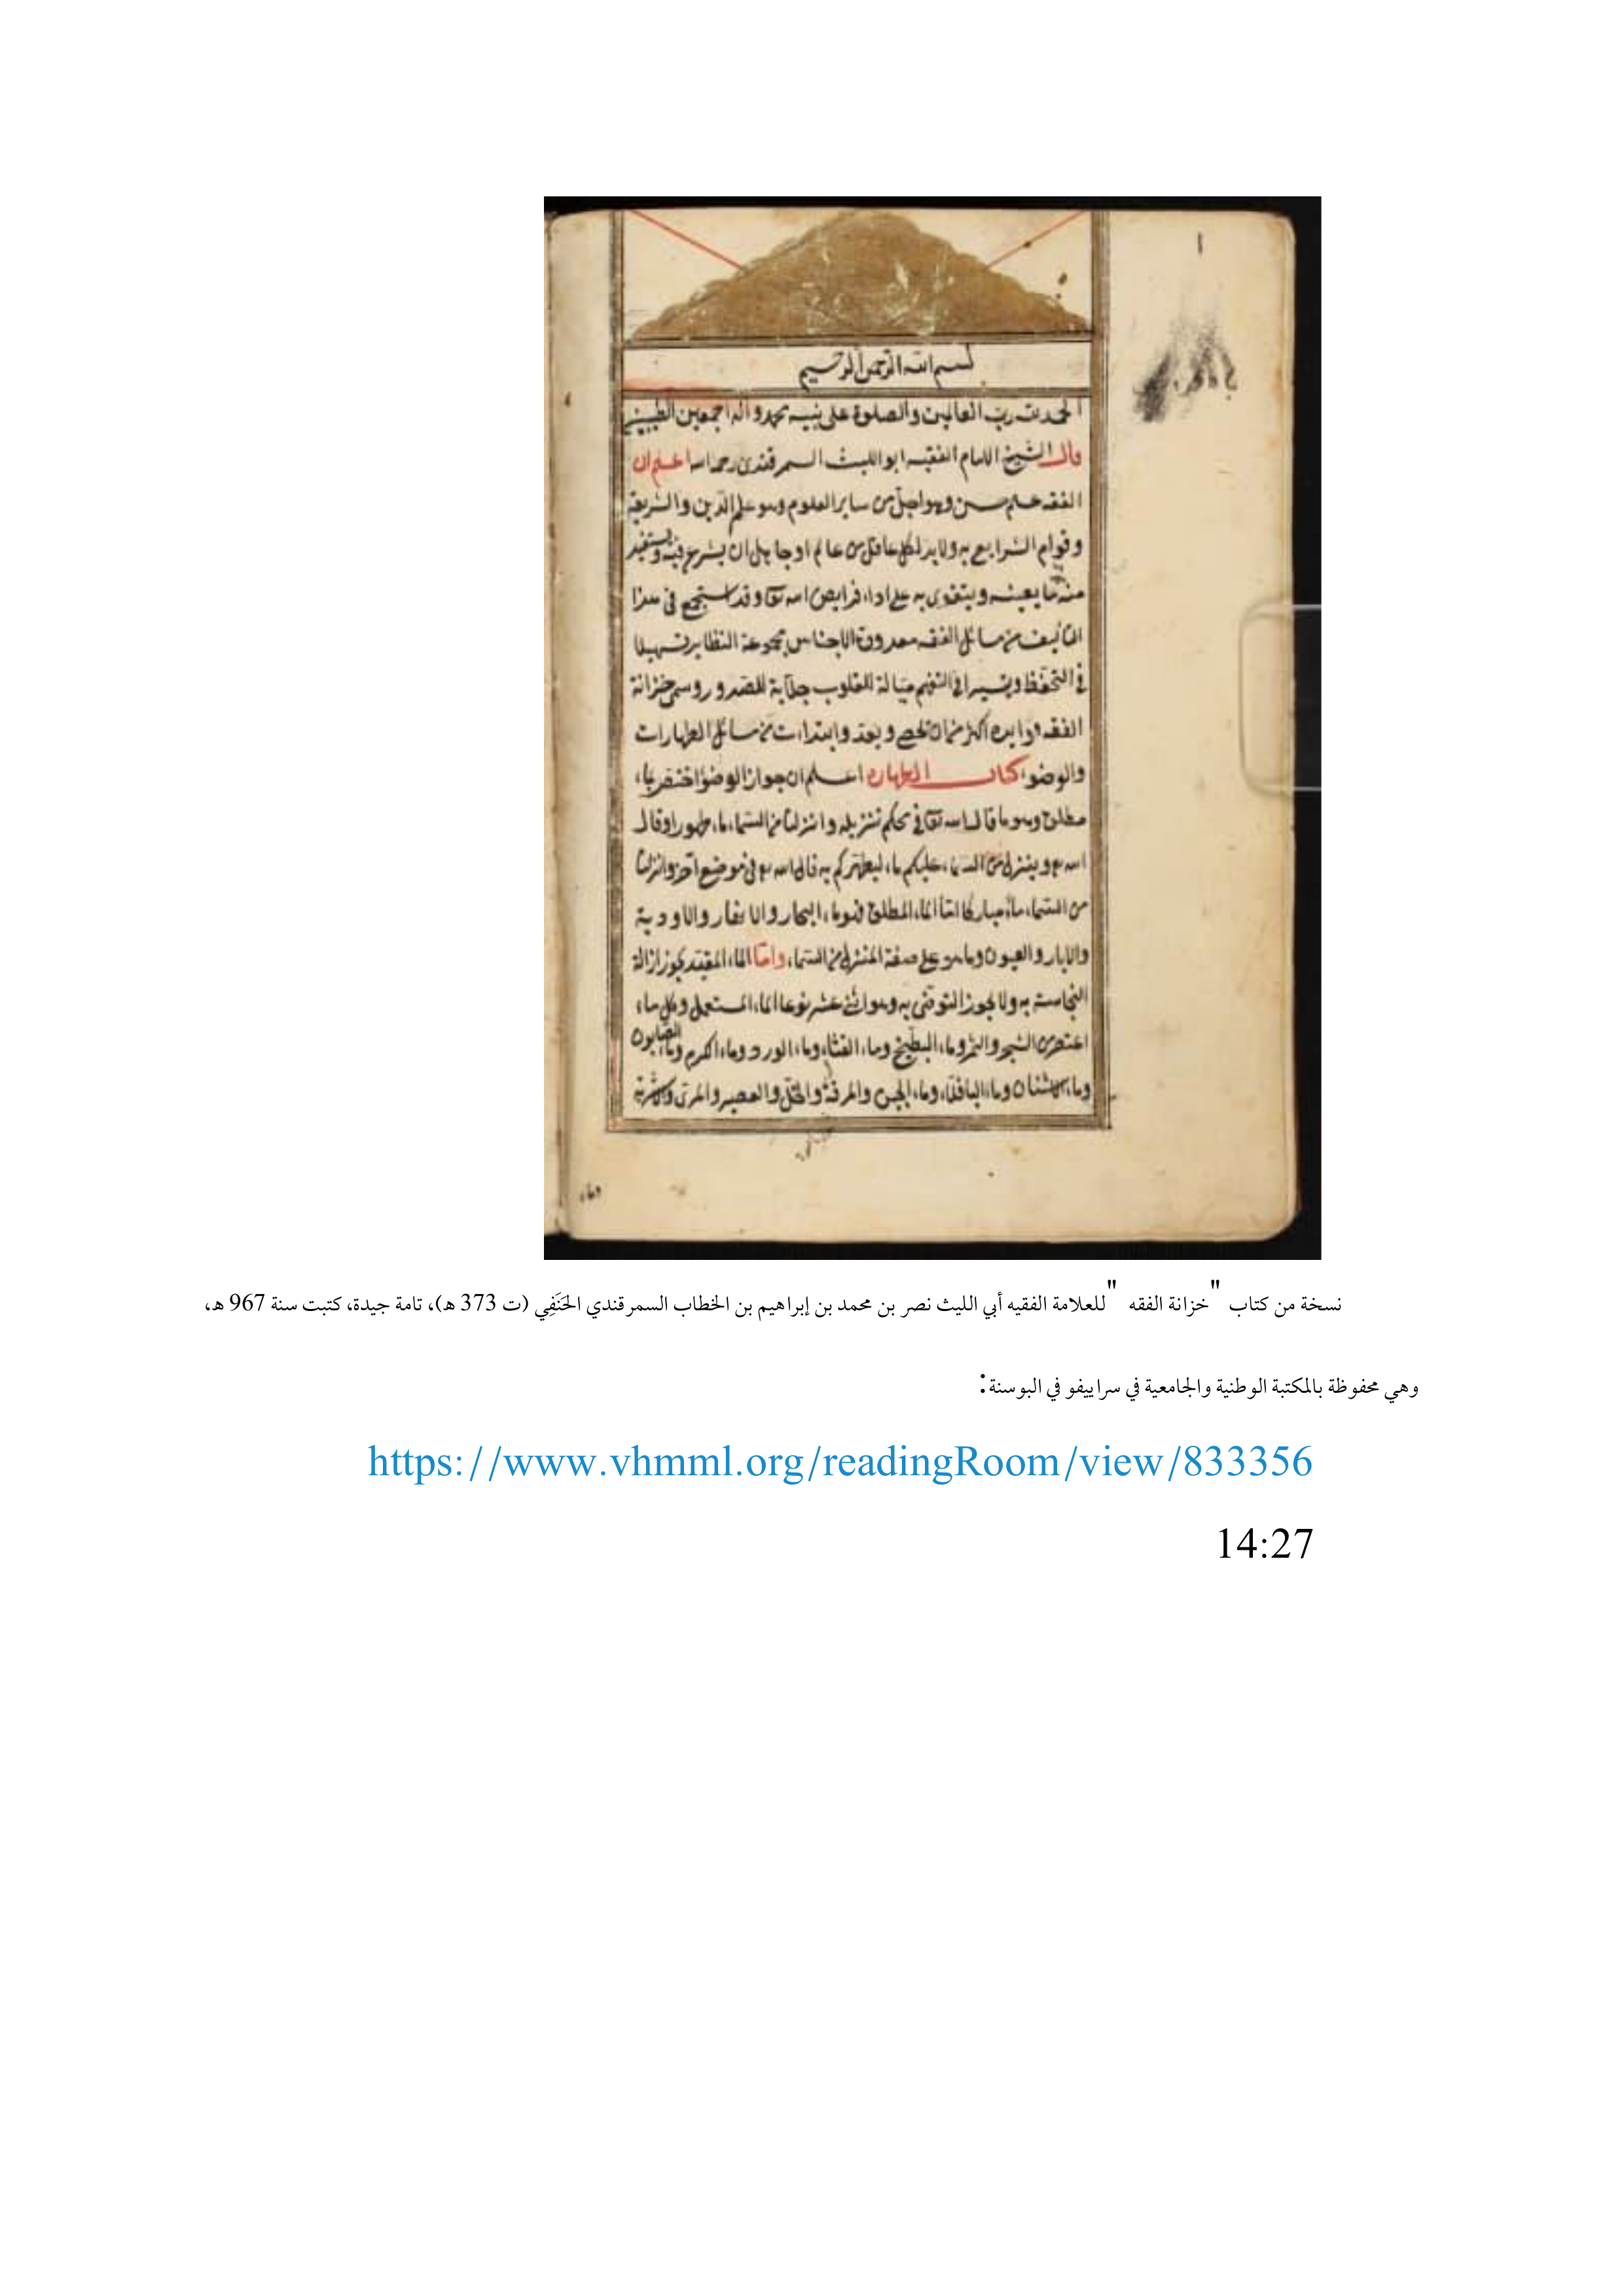 بسم الله الرحمن الرحيم
الحمد لله رب العالمين والصلوة على نبيه محمد واله اجمعين الطيبين
قال الشيخ الامام الفقيه ابو الليث السمرقندى رحمه الله اعلم ان
الفقه علم حسن وهو اجل من ساير العلوم وهو علم الدين والشريعة
وقوام الشرايع به ولابد لكل عاقل من عالم او جاهل ان يشرع فيه ويستفيد
منه ما يعينه ويتقوى به على اداء فرايض الله تعا وقد استجمع فى هذا
التأليف من مسائل الفقه معدودة الاجناس مجموعة النظاير تسهيلا
فى التحفظ وتيسيرا فى التفهم ميالة للقلوب جلابة للصدور وسمى خزانة
الفقه وفوايده اكثر من ان تحصى وتعد وابتدات من مسائل الطهارات
والوضوء كتاب الطهاره اعلم ان جواز الوضوء بماء
مطلق وهو ما قال الله تعا فى محكم تنزيله وانزلنا من السماء ماء طهورا وقال
الله تع وينزل من السماء عليكم ماء ليطهركم به قال الله تع فى موضع آخر وانزلنا
من السماء ماء مباركا اما الماء المطلق فهو ماء البحار والانهار والاودية
والابار والعيون وما هو على صفة المنزل من السماء واما الماء المقيد يجوز ازالة
النجاسة به ولا يجوز التوضى به وهو اثنى عشر نوعا الماء المستعمل وكل ماء
اعتصر من الشجر والثمر وماء البطيخ وماء القثاء وماء الورد وماء الكرم وماء الصابون
وماء الاشنان وماء الباقلاء وماء الجبن والمرقة والخل والعصير والمرى والاشربة
وماء
نسخة من كتاب "خزانة الفقه" للعلامة الفقيه أبي الليث نصر بن محمد بن إبراهيم بن الخطاب السمرقندي الحَنَفِي (ت 373 هـ)، تامة جيدة، كتبت سنة 967 هـ،
وهي محفوظة بالمكتبة الوطنية والجامعية في سراييفو في البوسنة:
https://www.vhmml.org/readingRoom/view/833356
14:27